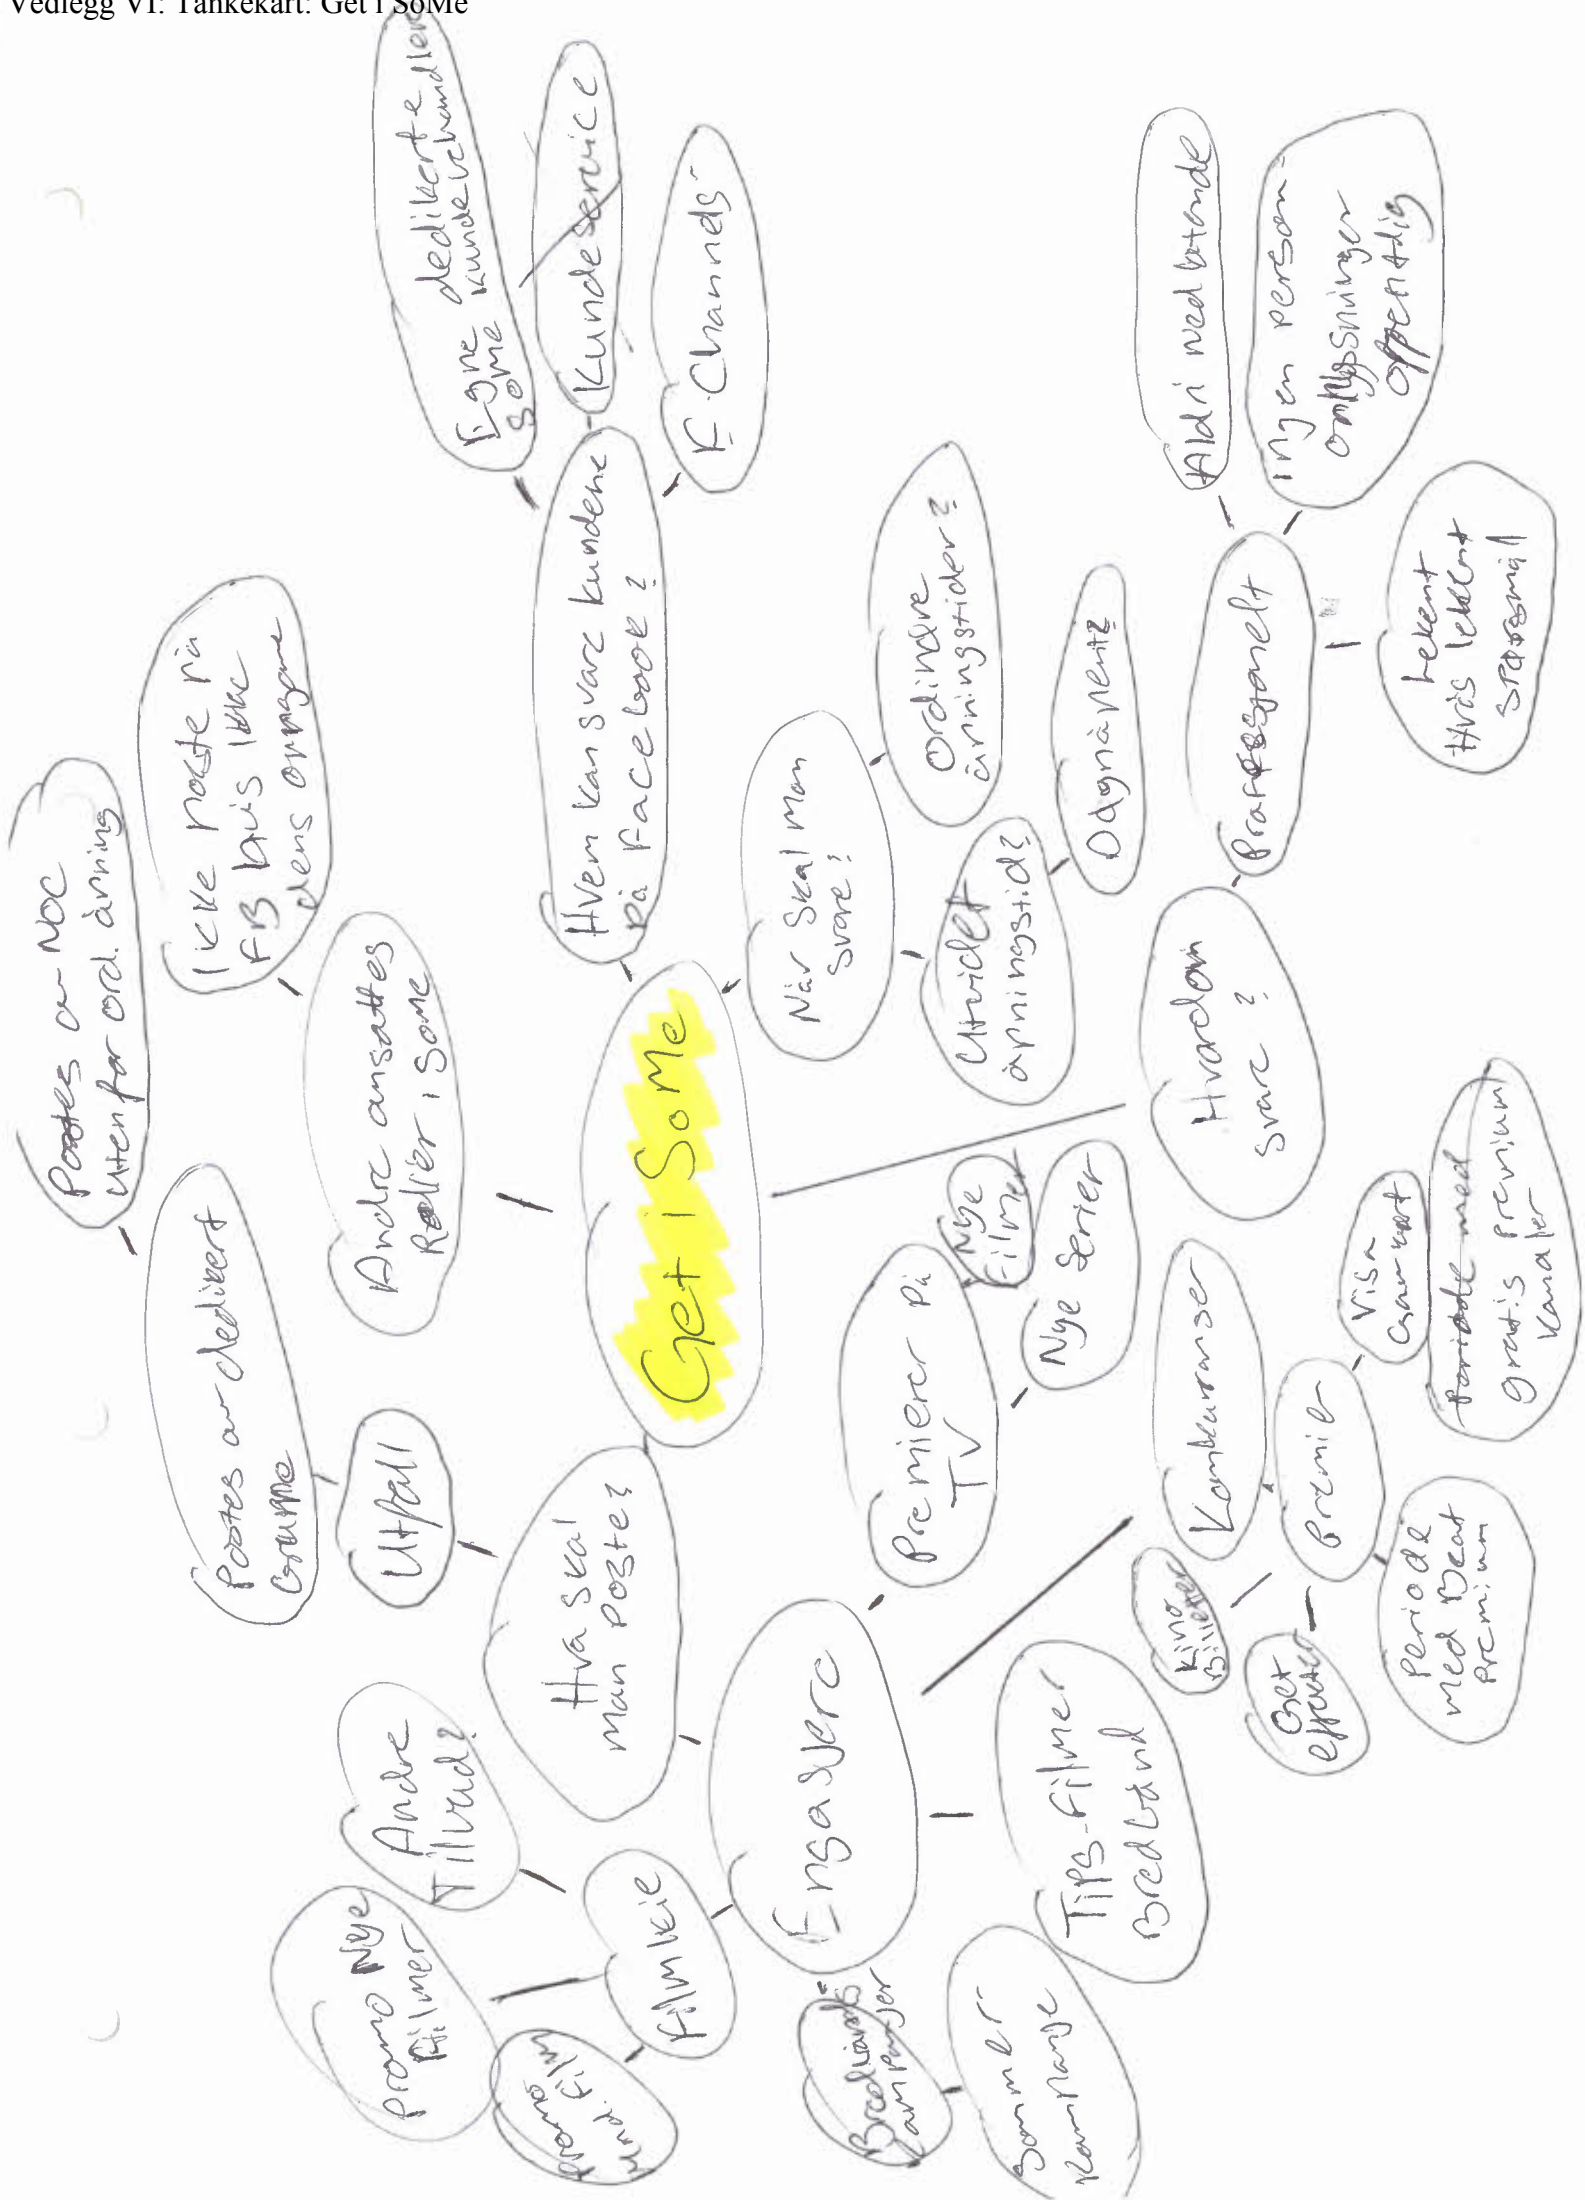 Vedlegg VI: Tankekart: Get i SoMe
Get i SoMe
Hvem kan svare kundene
på Facebook?
Egne dedikerte
some kundebehandlere
Kundeservice
E-Channels
Når skal man
svare?
Ordinære
åpningstider?
Utvidet
åpningstid?
Døgnåpent?
Hvordan
svare?
Profesjonelt
Aldri nedlatende
Ingen person-
opplysninger
offentlig
Lekent
Hvis lekent
spørsmål
Andre ansattes
Roller i some
Ikke poste på
FB hvis ikke
dens område
Hva skal
man poste?
Utfall
Postes av dedikert
Gruppe
Postes av NOC
utenfor ord. åpning
Engasjere
Premierer på
TV
Nye
Filmer
Nye Serier
Konkurranser
Premier
Visa
Gavekort
Periode med
gratis premium
kanaler
Periode
med Beat
Premium
Get
effekter
Kino
Billetter
Tips-Filmer
Bredbånd
Sommer
Kampanje
Bredbånds-
kampanjer
Filmleie
Andre
Tilbud?
Promo Nye
Filmer
Promo
Mnd. Film